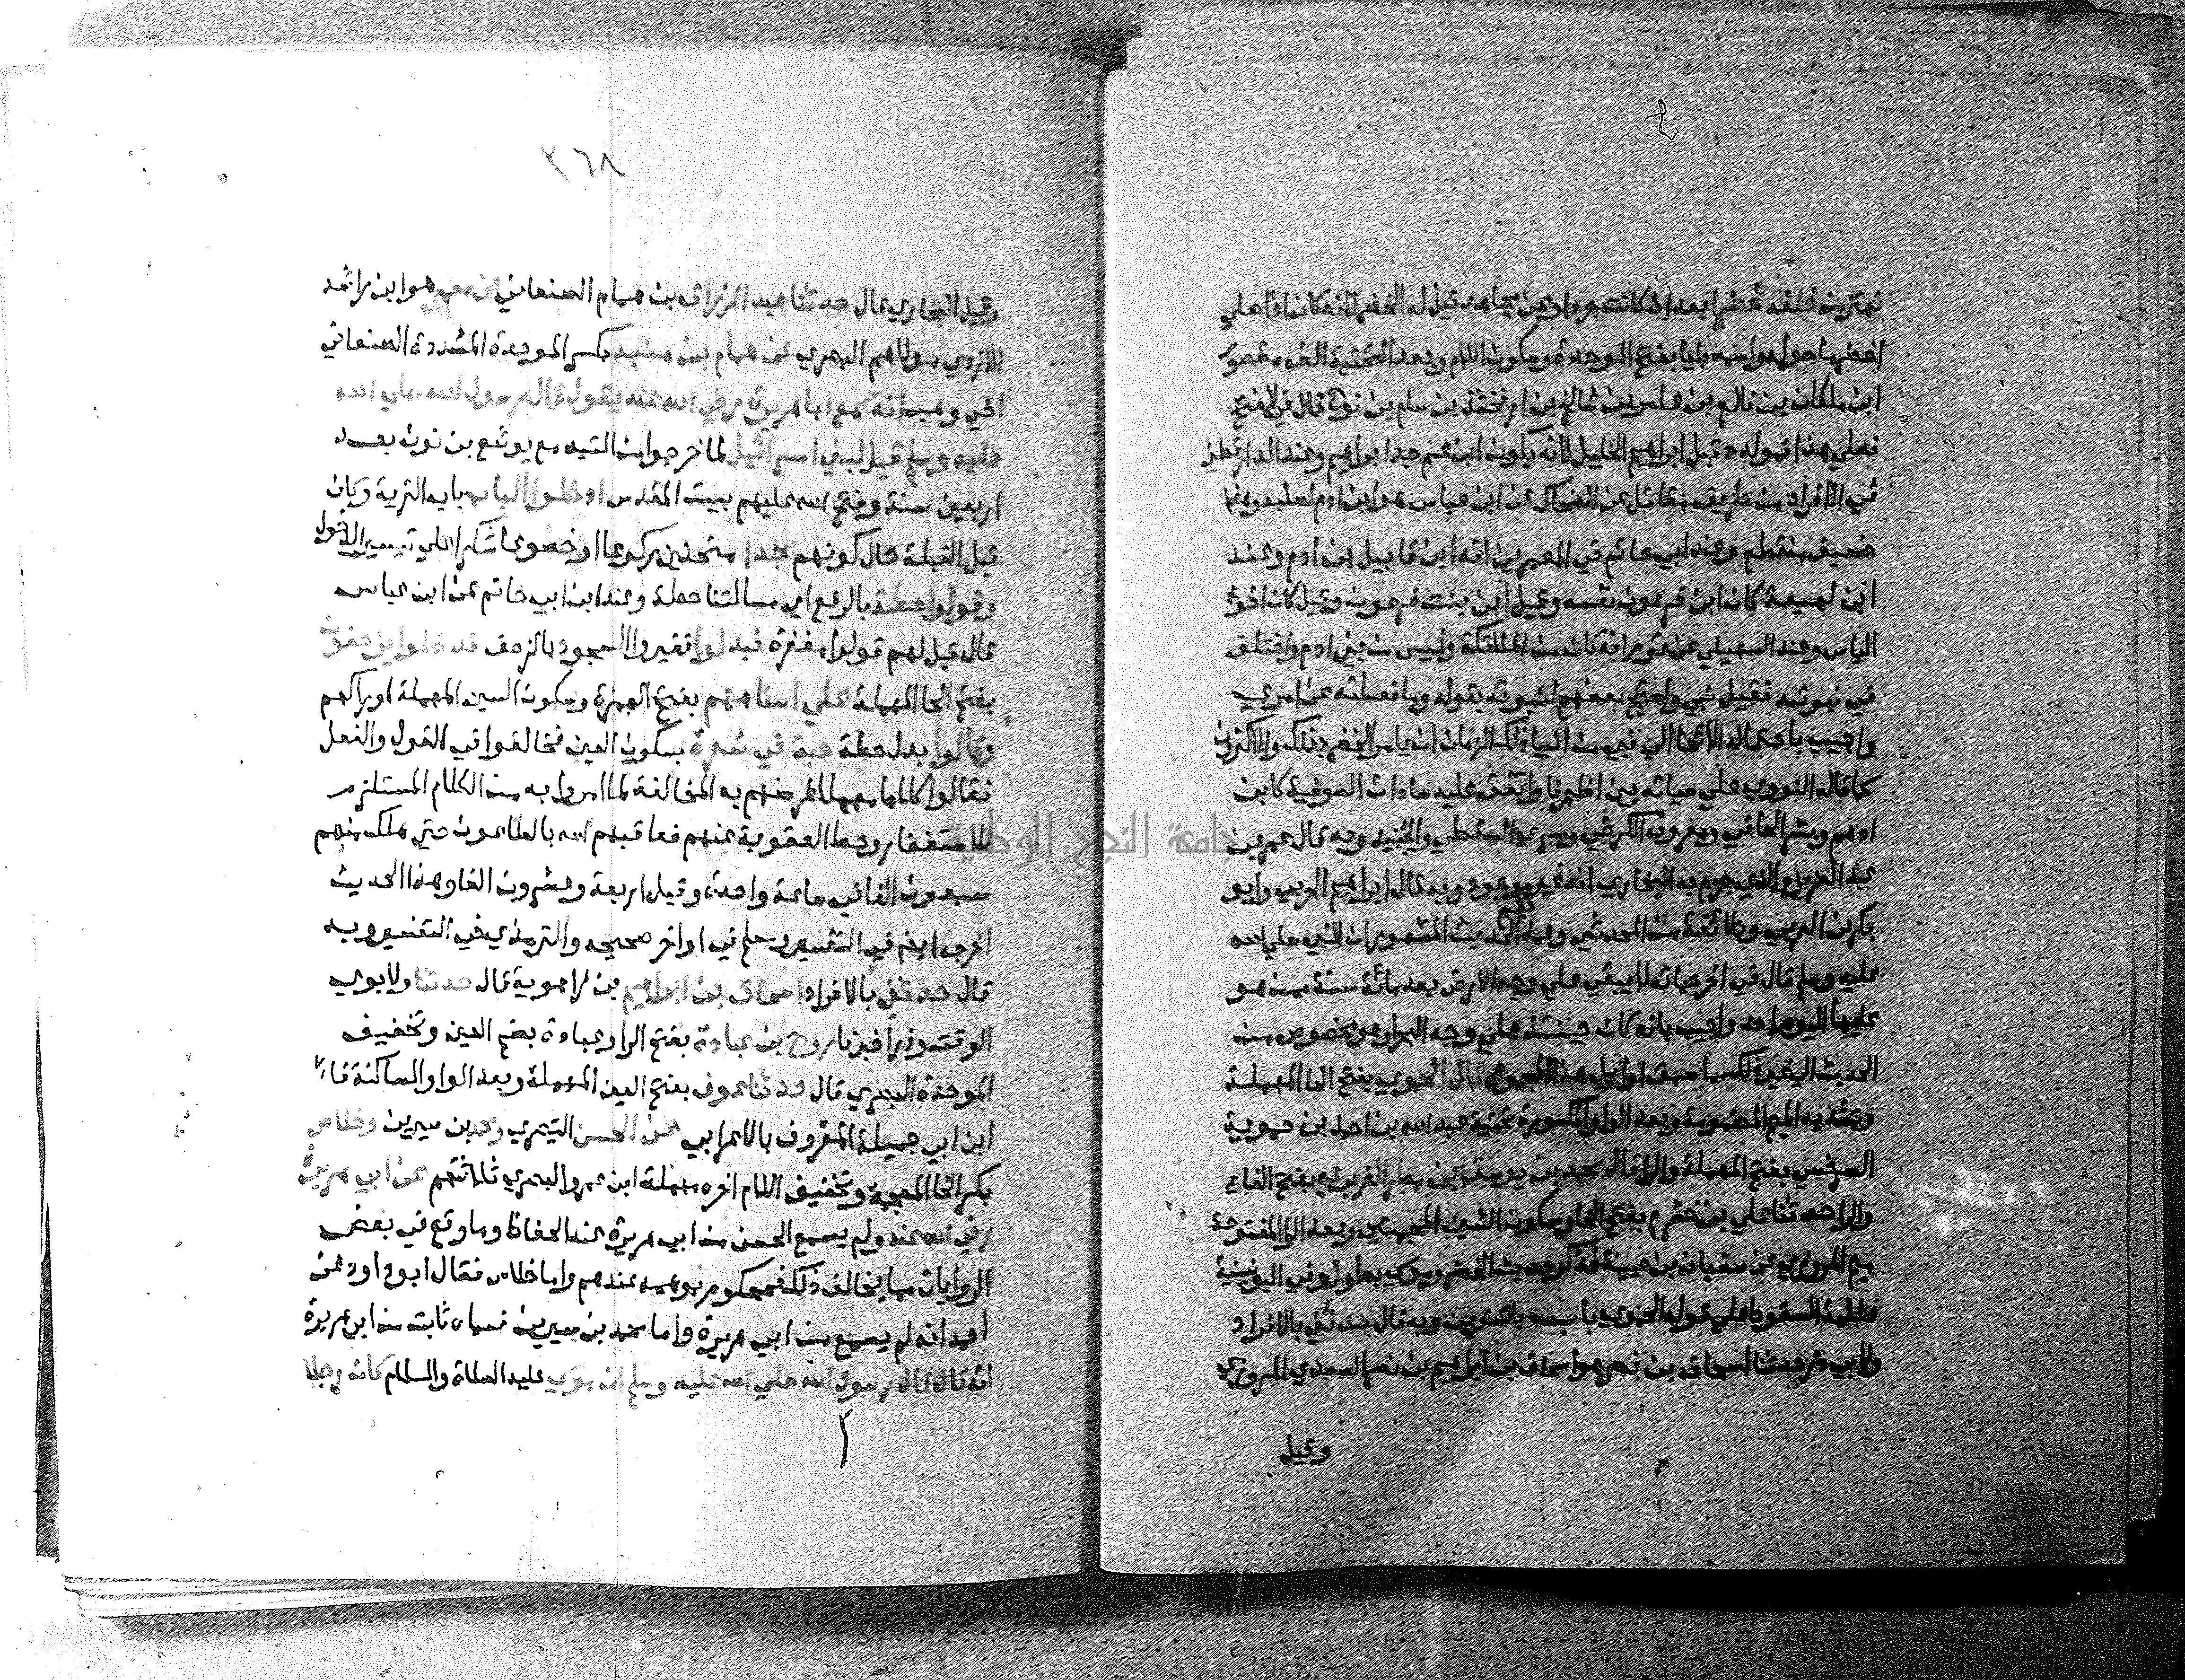 تهتز من خلفه خضرا بعد ان كانت جردا وعن مجاهد قيل له الخضر لانه كان اذا صلى
اخضر ما حوله واسمه بليا بفتح الموحدة وسكون اللام وبعد التحتية الف مقصور
ابن ملكان بن فالغ بن عابر بن شالخ بن ارفخشذ بن سام بن نوح قال في الفتح
فعلي هذا فمولده قبل ابراهيم الخليل لانه يكون ابن عم جد ابراهيم وعند الدارقطني
في الافراد من طريق مقاتل عن الضحاك عن ابن عباس هو ابن ادم لصلبه وهذا
ضعيف منقطع وعند ابي حاتم في المعمرين انه ابن قابيل بن ادم وعند
ابن لهيعة كان ابن فرعون نفسه وقيل ابن بنت فرعون وقيل كان اخو
الياس وعند السهيلي عن قوم انه كان من الملائكة وليس من بني ادم واختلف
في نبوته فقيل نبي واحتج بعضهم لنبوته بقوله وما فعلته عن امري
واجيب باحتمال الايحا الي نبي من انبيا ذلك الزمان ان يامر الخضر بذلك والاكثرون
كما قاله النووي علي حياته بين اظهرنا واتفق عليه سادات الصوفية كابن
ادهم وبشر الحافي ومعروف الكرخي وسري السقطي والجنيد وبه قال عمر بن
عبد العزيز والذي جزم به البخاري انه غير موجود وبه قال ابراهيم الحربي وابو
بكر بن العربي وطائفة من المحدثين وعمدتهم الحديث المشهور ان النبي صلي الله
عليه وسلم قال في اخر حياته لا يبقي علي وجه الارض بعد مائة سنة ممن هو
عليها اليوم احد واجيب بانه كان حينئذ علي وجه البحر او هو مخصوص من
الحديث الي غير ذلك مما سبق اوايل هذا المجموع قال الحموي بفتح الحا المهملة
وتشديد الميم المضمومة وبعد الواو المكسورة تحتية عبد الله بن احمد بن حموية
السرخسي بفتح المهملة والرا قال محمد بن يوسف بن مطر الفربري بفتح الفا
والرا حدثنا علي بن خشرم بفتح الخا وسكون الشين المعجمتين وبعد الرا المفتوحة
ميم المروزي عن سفيان بن عيينة فذكر حديث الخضر وموسي بطوله وفي اليونينية
علامة السقوط علي قوله الحموي باب بالتنوين وبه قال حدثني بالافراد
ولابي ذر حدثنا اسحاق بن نصر هو اسحاق بن ابراهيم بن نصر السعدي المروزي
وقيل
٣٦٨
وقيل البخاري قال حدثنا عبد الرزاق بن همام الصنعاني عن معمر هو ابن راشد
الازدي مولاهم البصري عن همام بن منبه بكسر الموحدة المشددة الصنعاني
اخي وهب انه سمع ابا هريرة رضي الله عنه يقول قال رسول الله صلي الله
عليه وسلم قيل لبني اسرائيل لما خرجوا من التيه مع يوشع بن نون بعد
اربعين سنة وفتح الله عليهم بيت المقدس ادخلوا الباب باب القرية وكان
قبل القبلة حال كونهم سجدا منحنين ركوعا او خضوعا شكرا علي تيسير الدخول
وقولوا حطة بالرفع اي مسالتنا حطة وعند ابن ابي حاتم عن ابن عباس
قال قيل لهم قولوا مغفرة فبدلوا فغيروا السجود بالزحف فدخلوا يزحفون
بفتح الحا المهملة علي استاههم بفتح الهمزة وسكون السين المهملة اوراكهم
وقالوا بدل حطة حبة في شعرة بسكون العين فخالفوا في القول والفعل
فقالوا كلاما مهملا غرضهم به المخالفة لما امروا به من الكلام المستلزم
للاستغفار وحط العقوبة عنهم فعاقبهم الله بالطاعون حتي هلك منهم
سبعون الفا في ساعة واحدة وقيل اربعة وعشرون الفا وهذا الحديث
اخرجه ايضا في التفسير ومسلم في اواخر صحيحه والترمذي في التفسير وبه
قال حدثني بالافراد اسحاق بن ابراهيم بن راهوية قال حدثنا ولابوي
الوقت وذر اخبرنا روح بن عبادة بفتح الرا وعبادة بضم العين وتخفيف
الموحدة البصري قال حدثنا عوف بفتح العين المهملة وبعد الواو الساكنة فا
ابن ابي جميلة المعروف بالاعرابي عن الحسن البصري ومحمد بن سيرين وخلاس
بكسر الخا المعجمة وتخفيف اللام اخره مهملة ابن عمرو البصري ثلاثتهم عن ابي هريرة
رضي الله عنه ولم يسمع الحسن من ابي هريرة عند الحفاظ وما وقع في بعض
الروايات مما يخالف ذلك فمحكوم بوهمه عندهم واما خلاس فقال ابو داود عن
احمد انه لم يسمع من ابي هريرة واما محمد بن سيرين فسماعه ثابت من ابي هريرة
انه قال قال رسول الله صلي الله عليه وسلم ان موسي عليه الصلاة والسلام كان رجلا
جامعة النجاح الوطنية